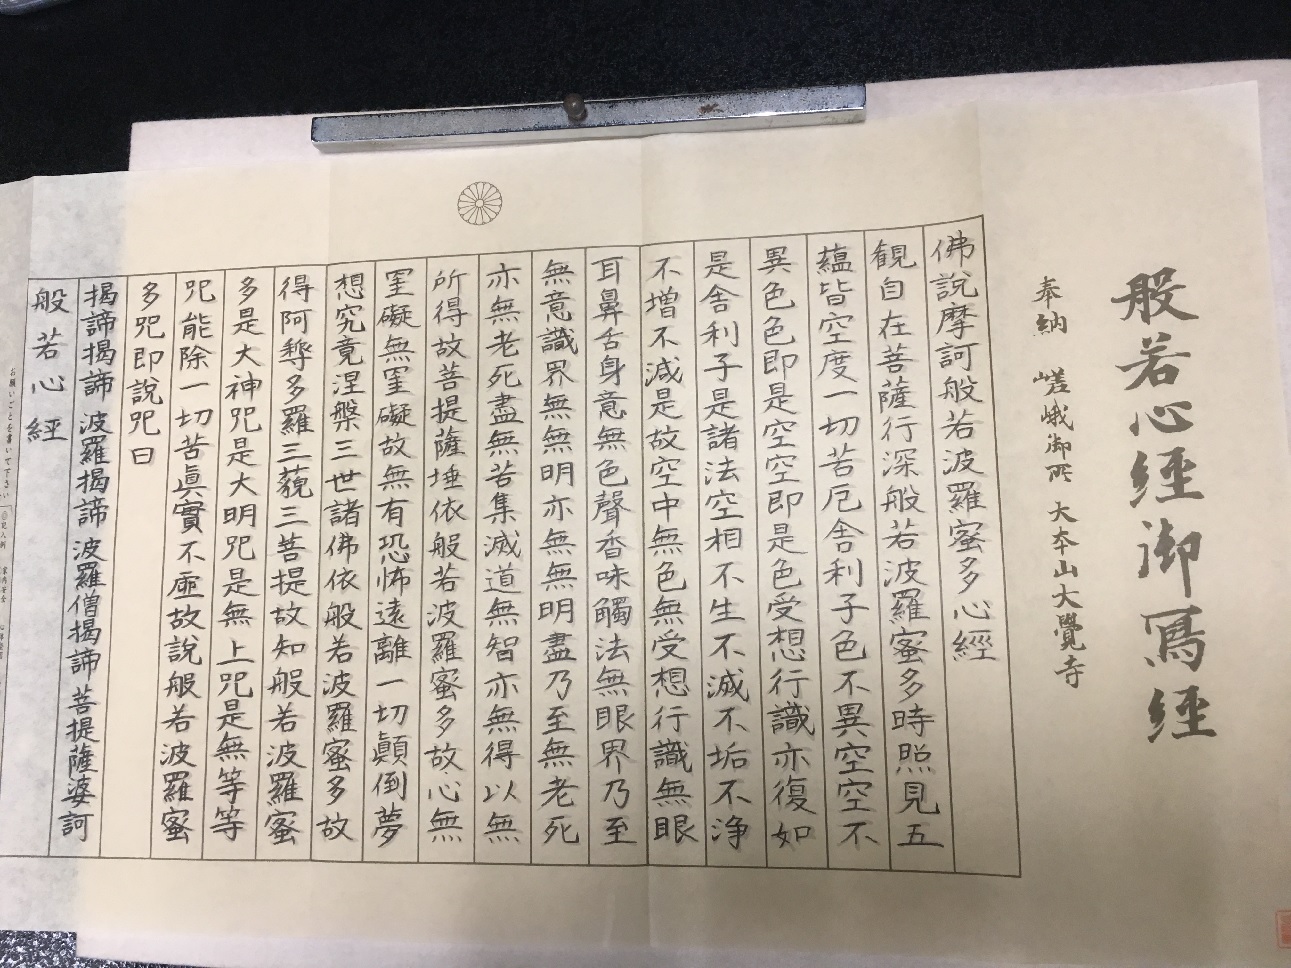 般若心經御寫經
奉納 嵯峨御所 大本山大覺寺
佛說摩訶般若波羅蜜多心經
観自在菩薩行深般若波羅蜜多時照見五
蘊皆空度一切苦厄舎利子色不異空空不
異色色即是空空即是色受想行識亦復如
是舎利子是諸法空相不生不滅不垢不浄
不増不減是故空中無色無受想行識無眼
耳鼻舌身意無色聲香味觸法無眼界乃至
無意識界無無明亦無無明盡乃至無老死
亦無老死盡無苦集滅道無智亦無得以無
所得故菩提薩埵依般若波羅蜜多故心無
罣礙無罣礙故無有恐怖遠離一切顛倒夢
想究竟涅槃三世諸佛依般若波羅蜜多故
得阿耨多羅三藐三菩提故知般若波羅蜜
多是大神咒是大明咒是無上咒是無等等
咒能除一切苦眞實不虛故說般若波羅蜜
多咒即說咒曰
揭諦揭諦 波羅揭諦 波羅僧揭諦 菩提薩婆訶
般若心經
お願いごとを書いて下さい